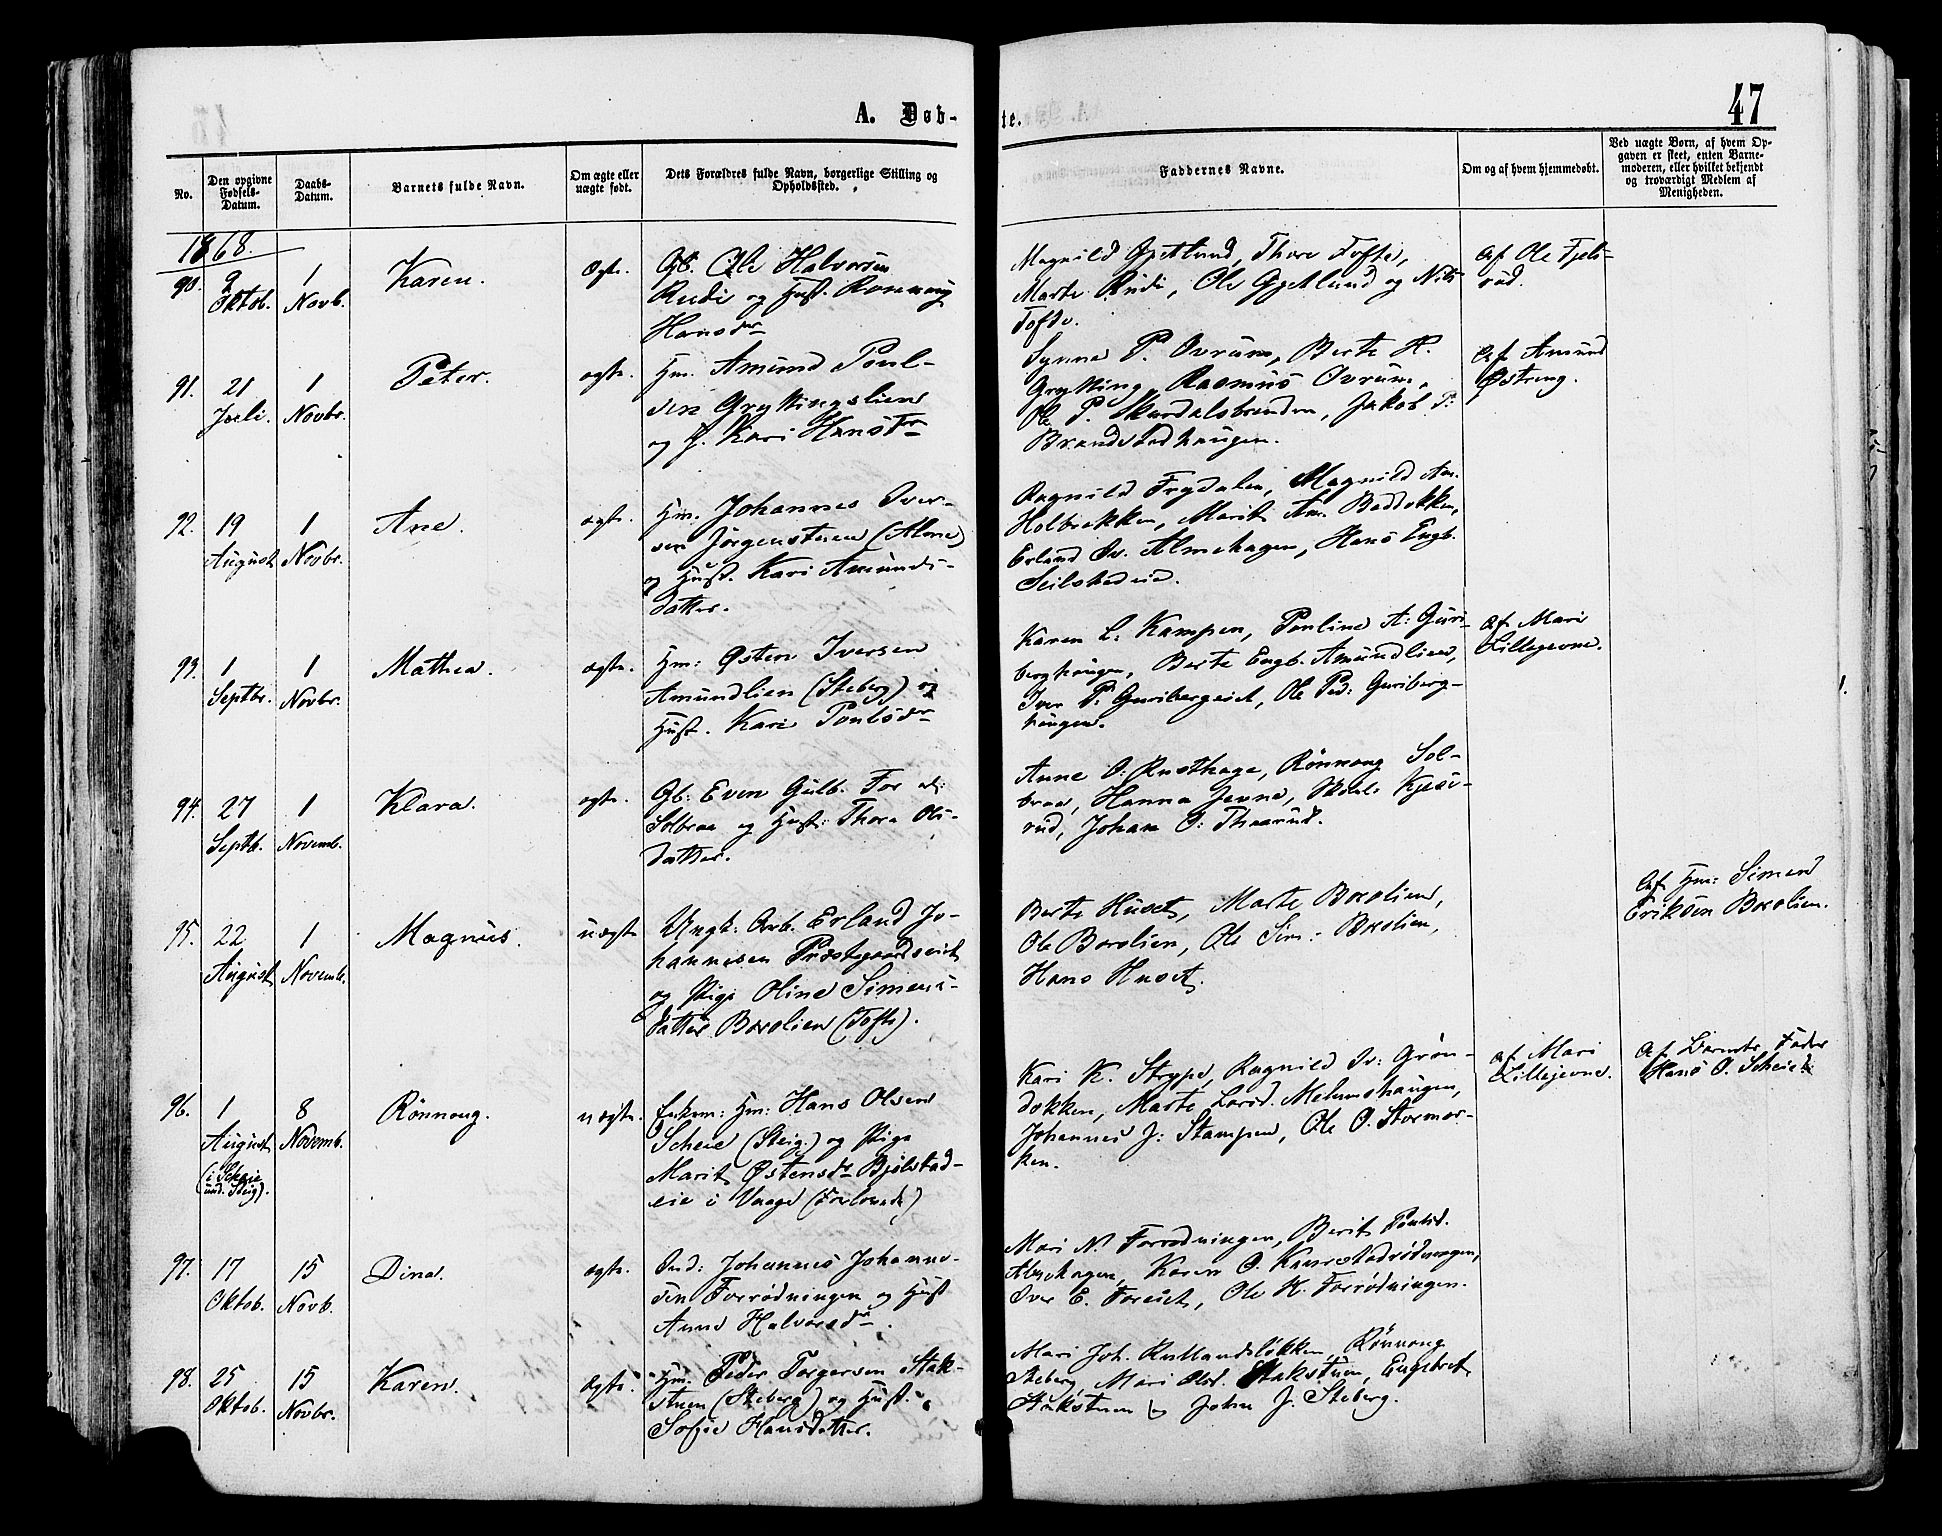 A. Døb-
te.
47
No.
Den opgivne Fødsels-Datum.
Daabs-Datum.
Barnets fulde Navn.
Om ægte eller uægte født.
Dets Forældres fulde Navn, borgerlige Stilling og Opholdssted.
Faddernes Navne.
Om og af hvem hjemmedøbt.
Ved uægte Børn, af hvem Opgaven er skeet, enten Barnemoderen, eller hvilket bekjendt og troværdigt Medlem af Menigheden.
1868.
90.
2 Oktob.
1 Novb.
Karen.
Ægte.
Gb. Ole Halvorsen
Rudi og Hust. Rønnoug
Hansdr
Magnild Gjetlund, Thore Tofte,
Marte Rudi, Ole Gjetlund og Nils
Tofte.
Af Ole Fjels-
rud.
91.
21 Juli.
1 Novbr.
Peter.
ægte.
Hm. Amund Poul-
sen Gryttingslien
og H. Kari Hansdr
Synne P. Ovrum, Berte H.
Grytting, Rasmus Ovrum,
Ole P. Skardalsbrenden, Jakob P:
Brandvoldhaugen.
Af Amund
Østreng.
92.
19 August
1 Novbr.
Ane.
ægte.
Hm. Johannes Iver-
sen Jørgenstuen (Alme)
og Hust. Kari Amunds-
datter.
Ragnild Frydalen, Magnild Am.
Holbrekken, Marit Am. Baddokken,
Erland Iv. Almehagen, Hans Engb.
Seilstadeie.
93.
1 Septbr.
1 Novbr.
Mathea.
ægte.
Hm: Østen Iversen
Amundlien (Steberg) og
Hust. Kari Poulsdr
Karen L. Kampen, Pouline A: Guri-
berghaugen, Berte Engb. Amundlien,
Iver P: Guribergeiet, Ole Ped: Guriberg-
haugen.
Af Mari
Lillejevne.
94.
27 Septb.
1 Novemb.
Klara.
ægte.
Gb: Even Gulb. For
Solbraa og Hust: Thora Ols-
datter.
Anne O. Rusthage, Rønnoug Sol-
braa, Hanna Jevne, Kjøs-
rud, Johan O: Thaarud.
95.
22 August
1 Novemb.
Magnus.
uægte
Ungk: Arb. Erland Jo-
hannesen Præstgaardseiet
og Pige Oline Simens-
datter Borolien (Tofte).
Berte Huset, Marte Borolien,
Ole Borolien, Ole Sim: Borolien,
Hans Huset.
Af Hm: Simen
Eriksen Borolien.
96.
1 August
(i Scheie und. Steig).
8 Novemb.
Rønnoug.
uægte.
Enkem: Hm: Hans Olsen
Scheie (Steig) og Pige
Marit Østensdr Bjølstad-
eie i Vaage (Forlovede)
Kari K. Strype, Ragnild Iv: Grøn-
dokken, Marte Larsd. Melumshaugen,
Johannes J: Stampen, Ole O. Stormor-
ken.
af Mari
Lillejevne.
Af Barnets Fader
Hans O. Scheie
97.
17 Oktob.
15 Novb.
Dina.
ægte.
Ind: Johannes Johanne-
sen Forrødningen og Hust
Anne Halvorsdr.
Mari N. Forrødningen, Berit Poulsd.
Almehagen, Karen O. Kanvestadrødningen,
Iver E. Foreiet, Ole H. Forrødningen.
98.
25 Oktob.
15 Novbr.
Karen.
Ægte.
Hm. Peder Torgersen Stak-
stuen (Steberg) og Hust.
Sofie Hansdatter.
Mari Joh. Rullandsløkken, Rønnoug
Steberg, Mari Olsd. Stakstuen, Engebret
Stakstuen og John J. Steberg.